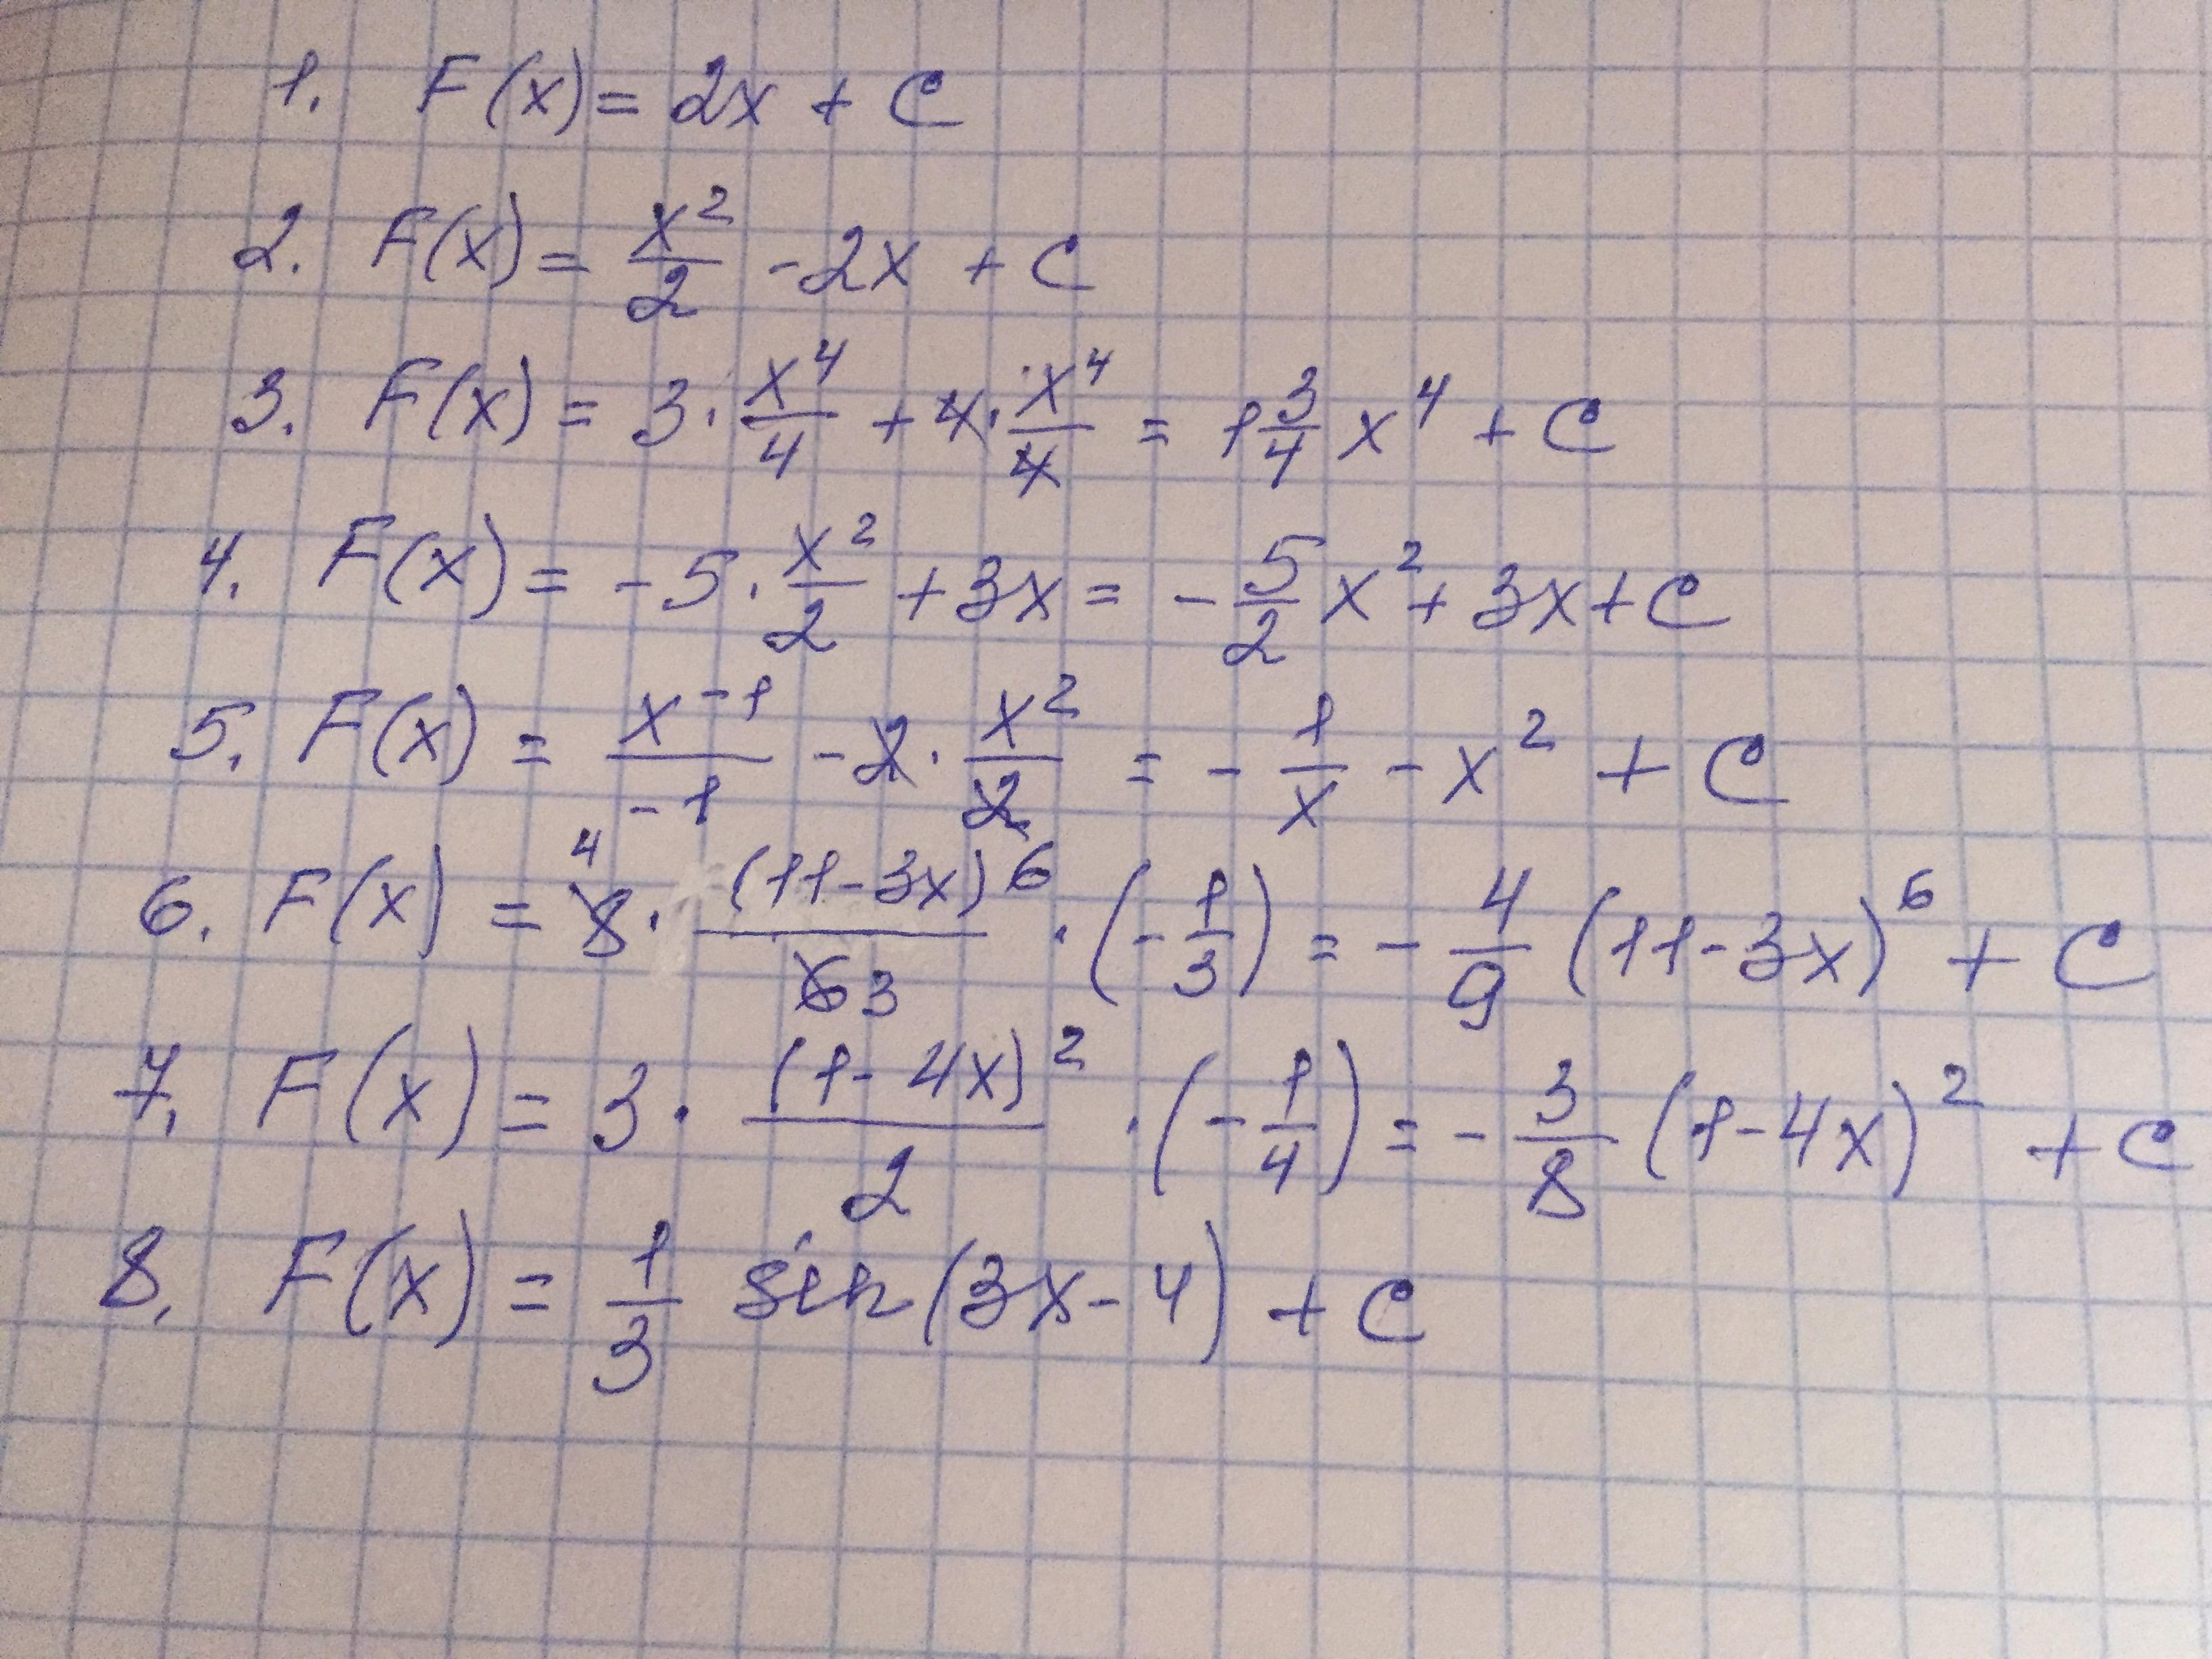 1. F(x) = 2x + C
2. F(x) = x²/2 - 2x + C
3. F(x) = 3 · x⁴/4 + 4 · x⁴/4 = 1 3/4 x⁴ + C
4. F(x) = -5 · x²/2 + 3x = -5/2 x² + 3x + C
5. F(x) = x⁻¹/-1 - 2 · x²/2 = -1/x - x² + C
6. F(x) = 8 4 · (11-3x)⁶/6 3 · (-1/3) = -4/9 (11-3x)⁶ + C
7. F(x) = 3 · (1-4x)²/2 · (-1/4) = -3/8 (1-4x)² + C
8. F(x) = 1/3 sin(3x-4) + C